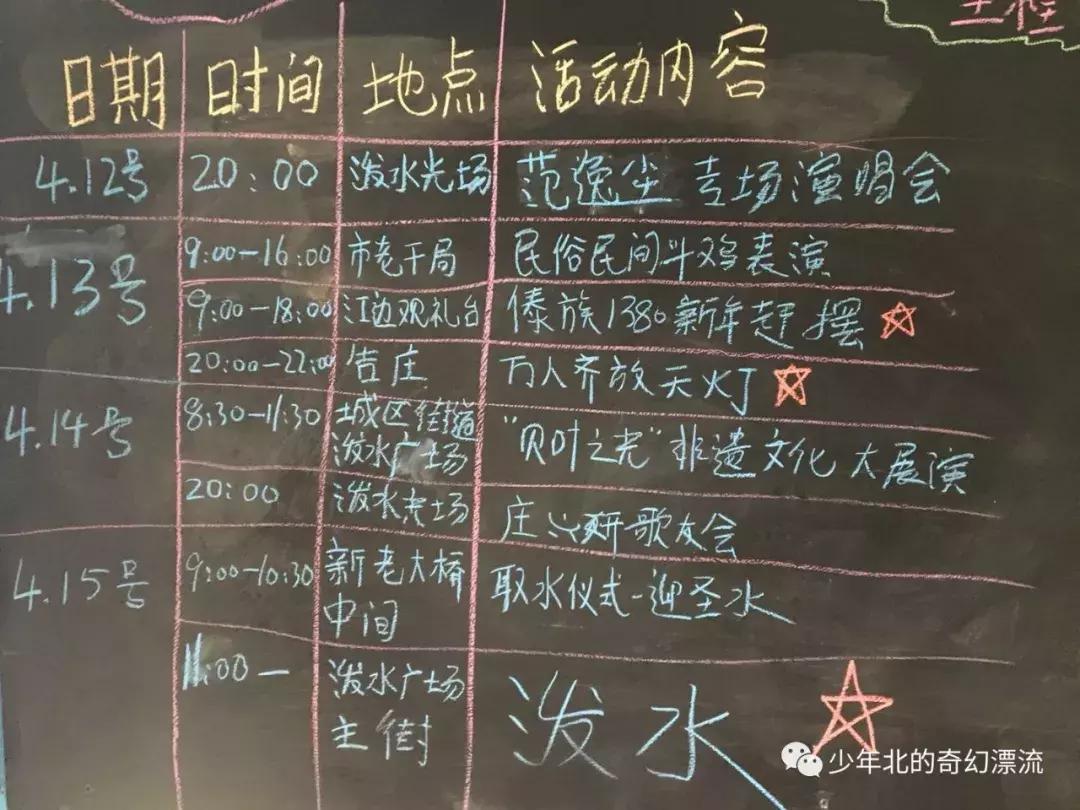 全程
日期 时间 地点 活动内容
4.12号 20:00 泼水光场 范逸尘 专场演唱会
4.13号 9:00-16:00 市老干局 民俗民间斗鸡表演
9:00-18:00 江边观礼台 傣族1380新年赶摆
20:00-22:00 告庄 万人齐放天灯
4.14号 8:30-11:30 城区街道 "贝叶之光"非遗文化大展演
泼水广场
20:00 泼水老场 庄心妍歌友会
4.15号 9:00-10:30 新老大桥 取水仪式-迎圣水
中间
11:00- 泼水广场 泼水
主街
少年北的奇幻漂流